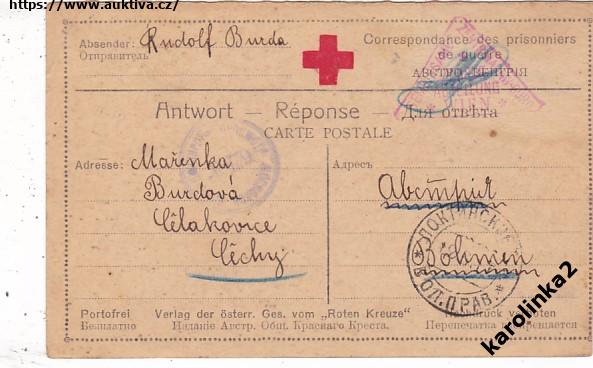 https://www.auktiva.cz/
Absender: Rudolf Burda
Отправитель
Correspondance des prisonniers
de guerre
АВСТРО-ВЕНГРІЯ
Antwort — Réponse — Для отвѣта
CARTE POSTALE
Adresse: Mařenka
Burdová
Čelakovice
Čechy
Адресъ
Австрия
Böhmen
Portofrei Verlag der österr. Ges. vom „Roten Kreuze" Nachdruck verboten
Безплатно Изданіе Австр. Общ. Краснаго Креста. Перепечатка воспрещается
karolinka2